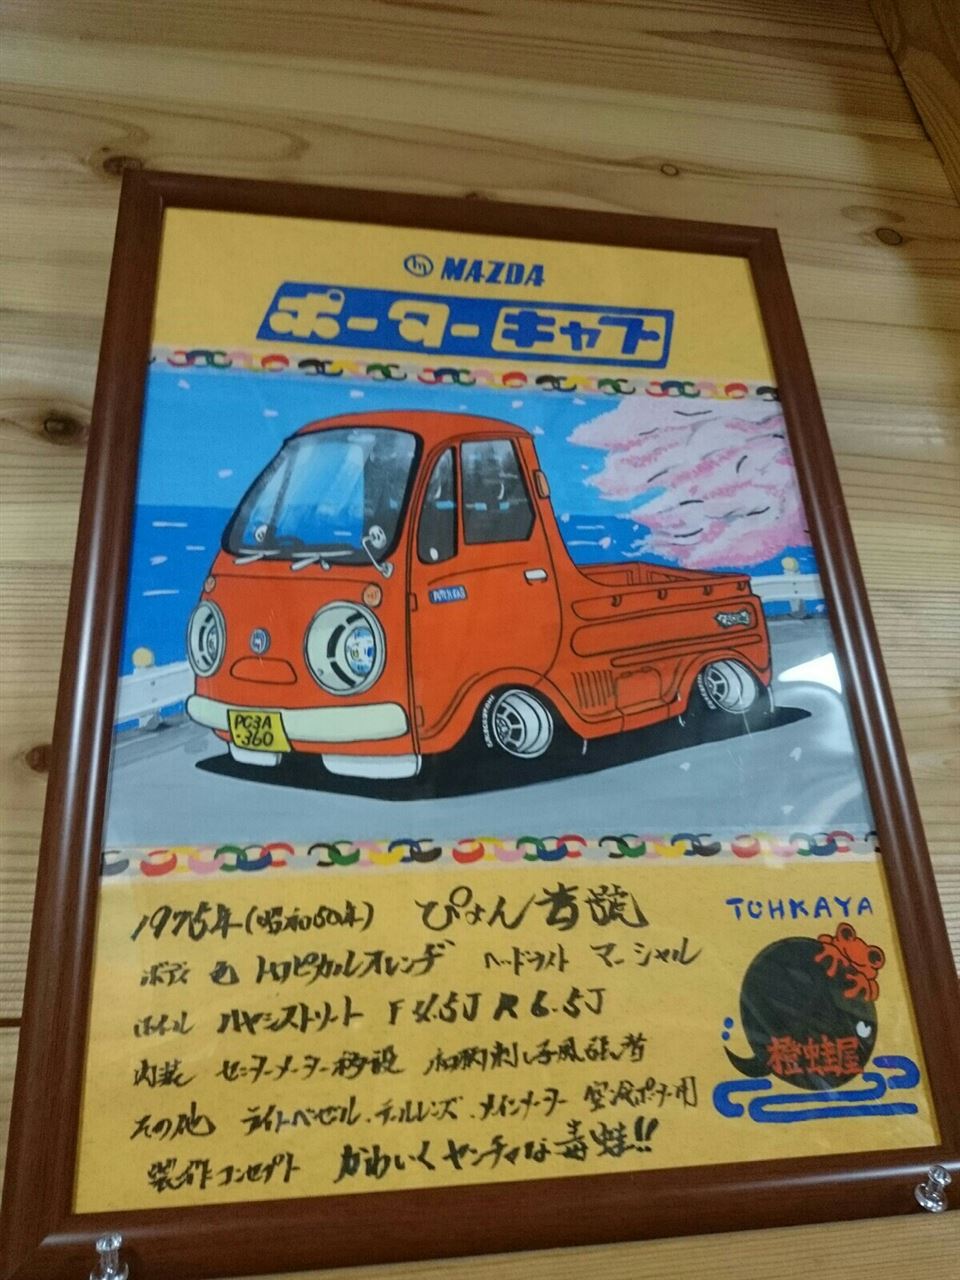 MAZDA
ポーターキャブ
PC3A
-360
1975年(昭和50年) ぴょん吉號
ボディ色 トロピカルオレンヂ ヘッドライト マーシャル
ホイル ハヤシストリート F 5.5J R 6.5J
内装 センターメーター移設 和柄刺し子風張り替
その他 ライトベゼル、テールレンズ、メインメーター 空冷ポーター用
製作コンセプト かわいくヤンチャな毒蛙!!
TOHKAYA
橙蛙屋